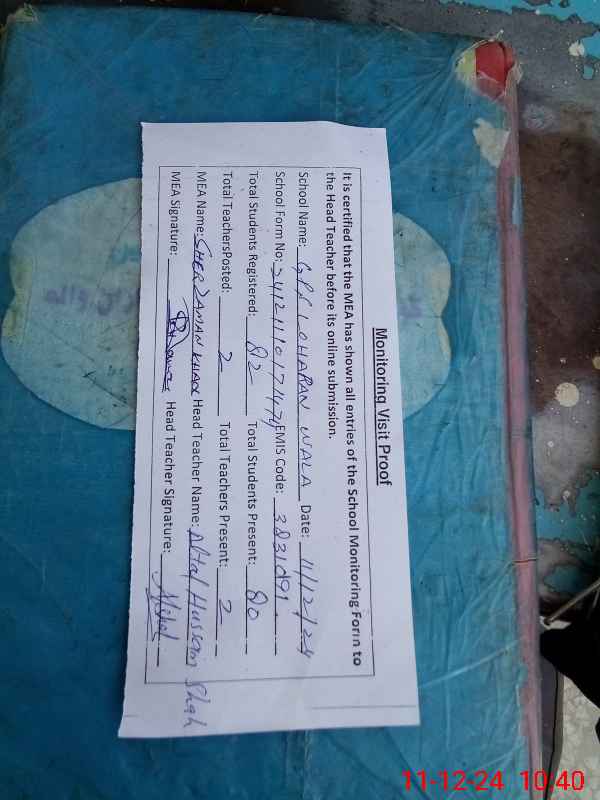 Monitoring Visit Proof
It is certified that the MEA has shown all entries of the School Monitoring Form to
the Head Teacher before its online submission.
School Name: GPS LOHARAN WALA Date: 11/12/24
School Form No: EMIS Code:
Total Students Registered: 82 Total Students Present: 80
Total TeachersPosted: 2 Total Teachers Present: 2
MEA Name: SHER ZAMAN KHAN Head Teacher Name: Altaf Hussain Shah
MEA Signature: Head Teacher Signature:
11-12-24 10:40